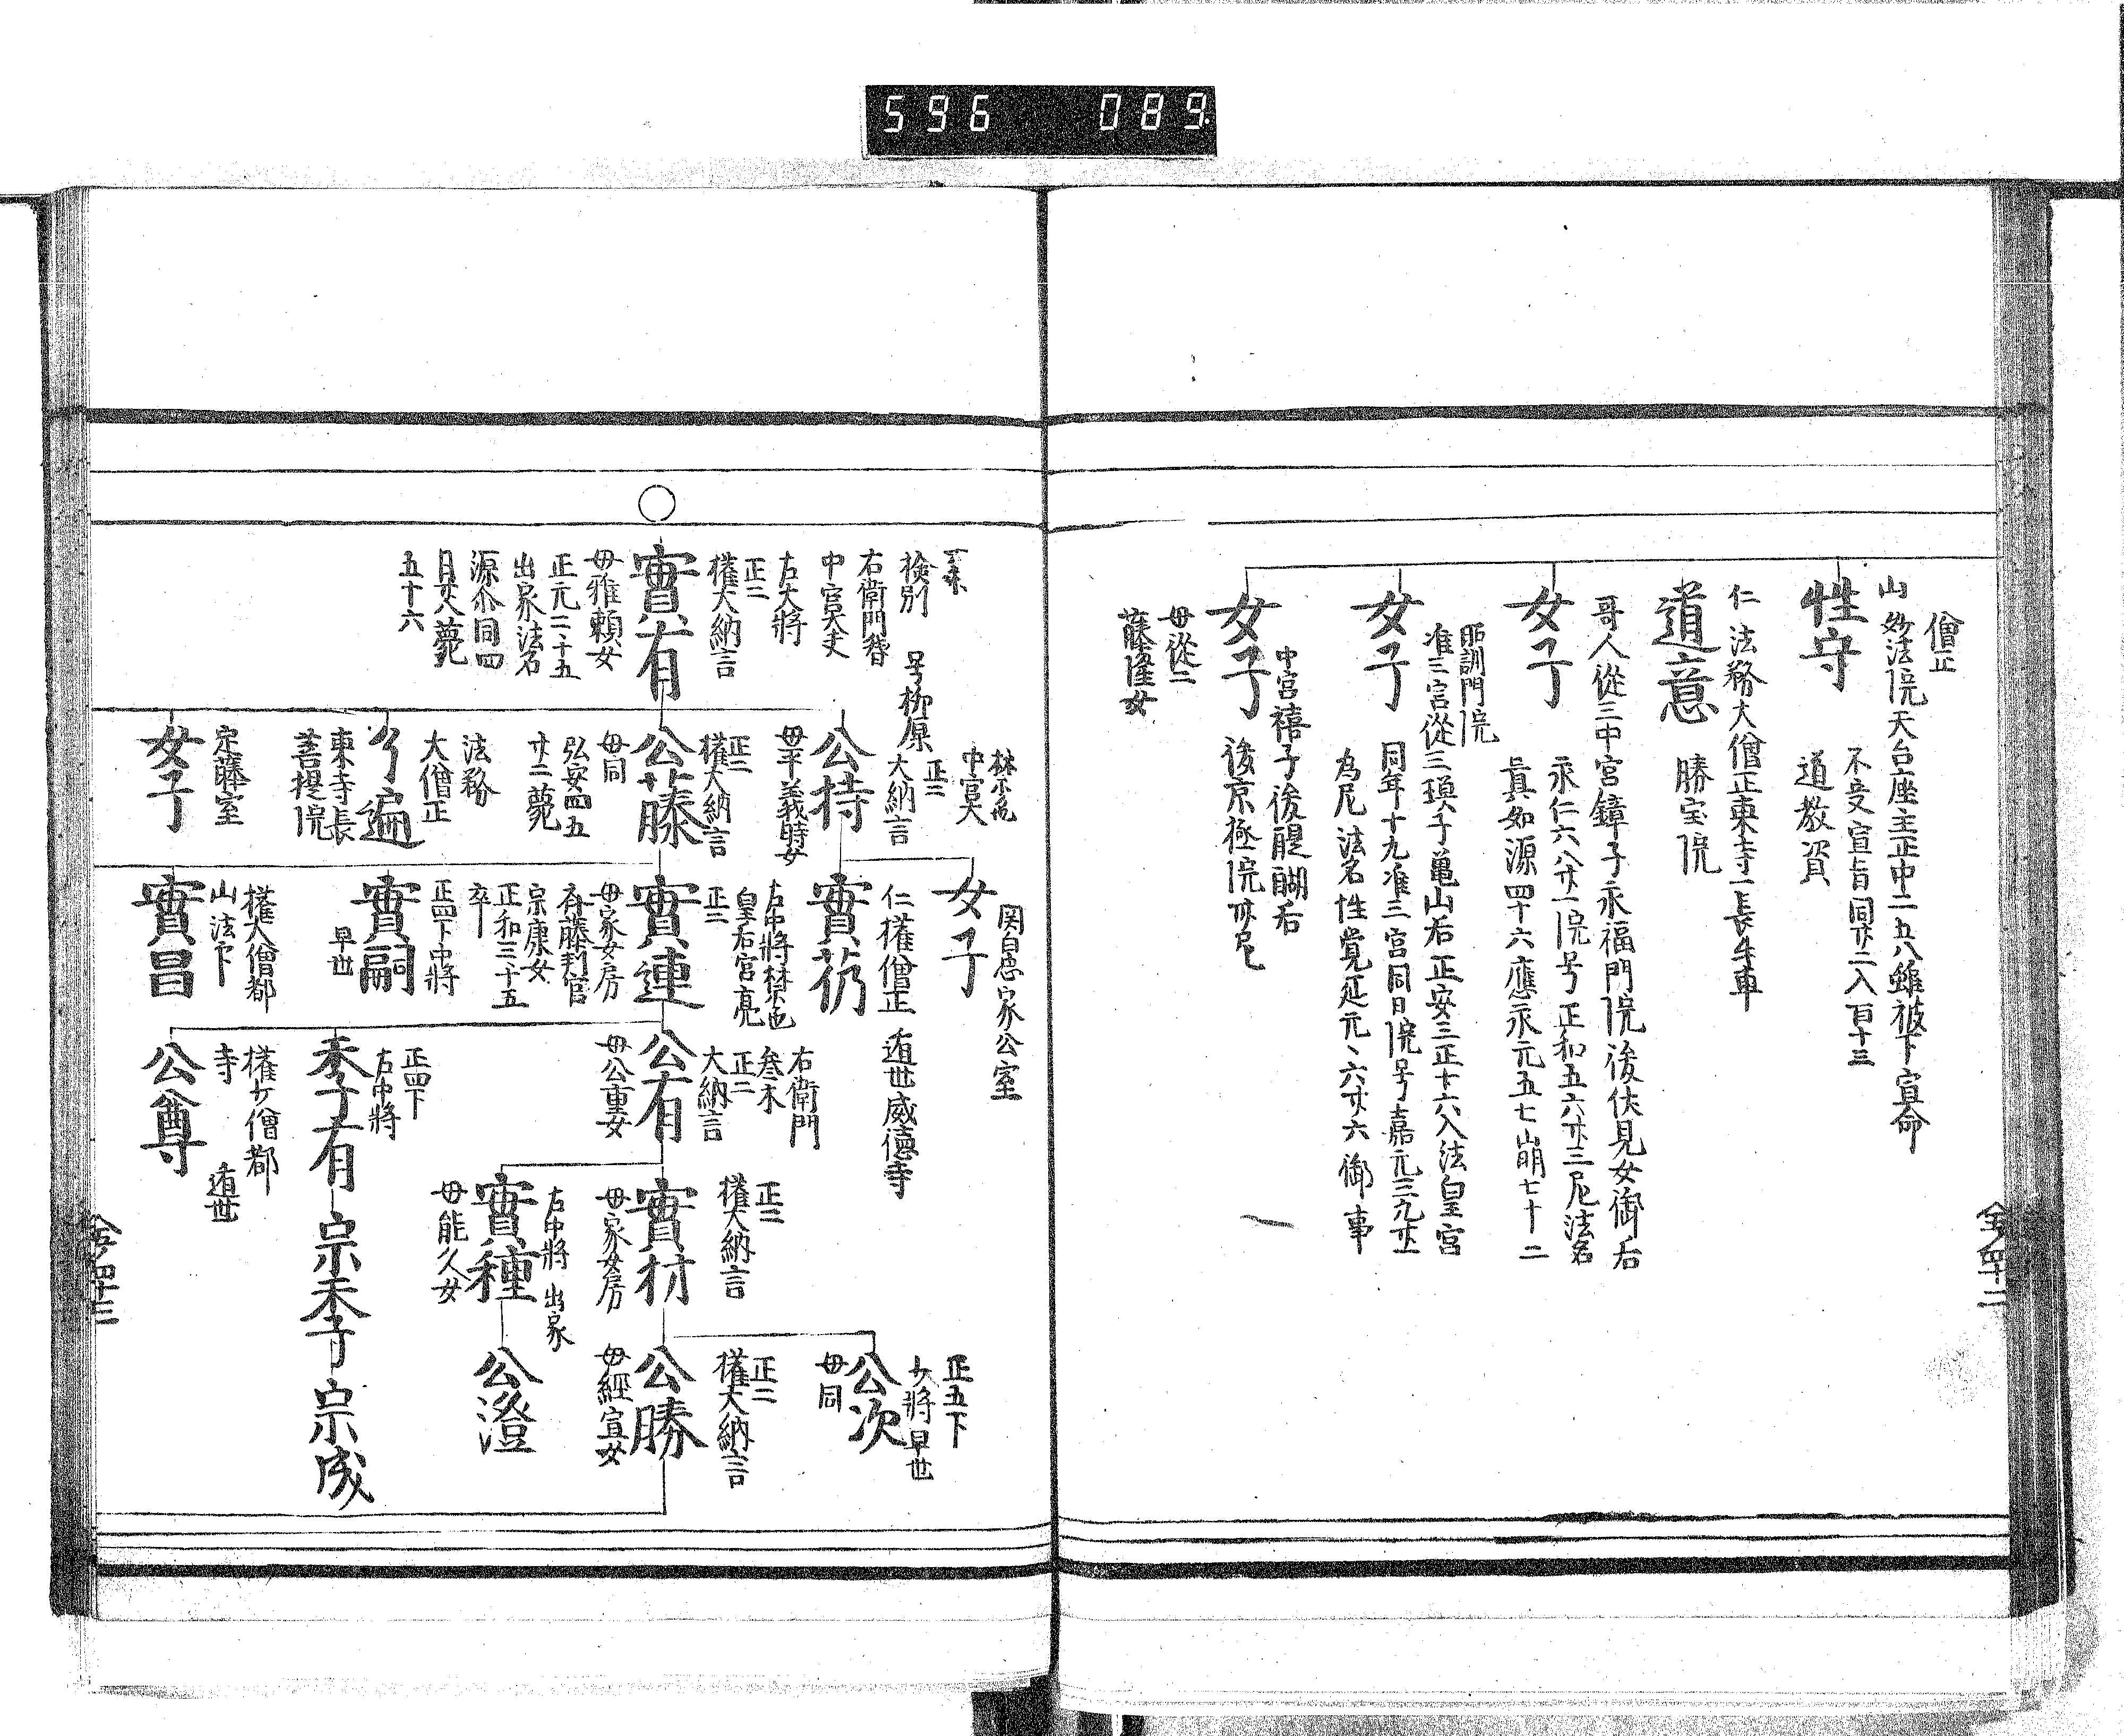 596 089
僧正
山 妙法院天台座主正中二五八雖被下宣命
不受宣旨同廿二入百十三
性守
道教資
仁 法務大僧正東寺一長牛車
道意 勝宝院
哥人從三中宮鏱子永福門院後伏見女御后
永仁六八廿一院号正和五六廿三尼法名
女子
眞如源四十六應永元五七崩七十二
昭訓門院
准三宮從三瑛子亀山后正安三正十六入法皇宮
同年十九准三宮同日院号嘉元三九廿一
女子
為尼法名性覚延元々六廿六御事
中宮禧子後醍醐后
女子 後京極院
母從二
藤隆女
全 四十二
檢別
右衛門督
中宮大夫
右大将
正二
權大納言
實有
母雅頼女
正元二十五
出家法名
源尒同四
月廿八薨
五十六
号柳原
中宮大
正二
大納言
公持
母平義時女
正二
權大納言
公藤
母同
弘安四五
廿二薨
法務
大僧正
了遍
東寺長
菩提院
定藤室
女子
関白忠家公室
女子
仁權僧正 遁世威徳寺
實仍
右中将
皇右宮亮
正二
實連
母家女房
斉藤判官
宗康女
正和三十五
卒
正四下中将
實嗣
早世
權大僧都
山法下
實昌
右衛門
叅木
正二
大納言
公有
母公重女
正四下
右中将
季有 宗季 宗成
權少僧都
寺 遁世
公尊
正二
權大納言
實材
母家女房
右中将 出家
實種
母能久女
正五下
少将早世
公次
母同
正二
權大納言
公勝
母經宣女
公澄
全 四十三